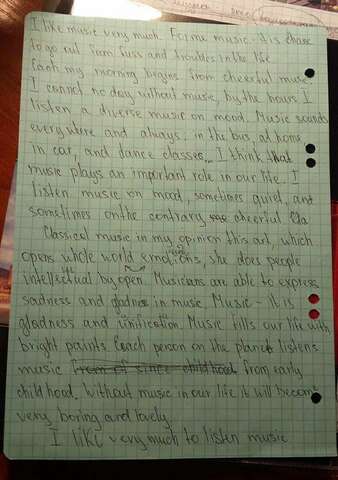 I like music very much. For me music it is chance
to go out from fuss and troubles in the life
Each my morning begins from cheerful music
I cannot no day without music, by the hours I
listen a diverse music on mood. Music sounds
everywhere and always: in the bus, at home
in car, and dance classes... I think that
music plays an important role in our life. I
listen music on mood, sometimes quiet, and
sometimes on the contrary cheerful
Classical music in my opinion this art, which
opens whole world emotions, she does people
intellectual by open. Musicians are able to express
sadness and gladness in music. Music - it is
gladness and unification. Music fills our life with
bright paints Each person on the planet listens
music from of since childhood from early
childhood. Without music in our life it will become
very boring and lovely
I like very much to listen music